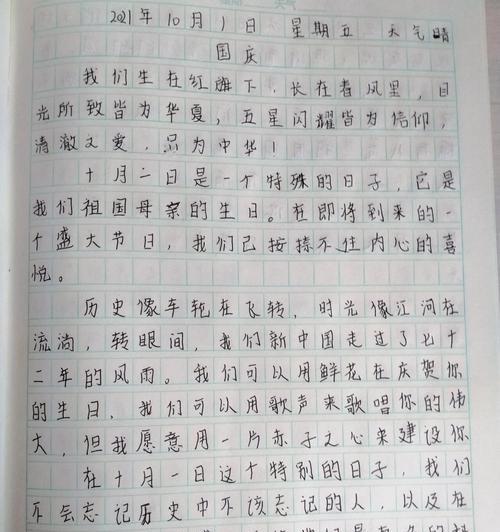 2021年10月1日 星期五 天气晴
国庆
我们生在红旗下，长在春风里，目
光所致皆为华夏，五星闪耀皆为信仰，
清澈文爱，只为中华！
十月二日是一个特殊的日子，它是
我们祖国母亲的生日。在即将到来的一
个盛大节日，我们已按捺不住内心的喜
悦。
历史像车轮在飞转，时光像江河在
流淌，转眼间，我们新中国走过了七十
二年的风雨。我们可以用鲜花在庆贺你
的生日，我们可以用歌声来歌唱你的伟
大，但我愿意用一片赤子之心来建设你
在十月一日这个特别的日子，我们
不会忘记历史中不该忘记的人，以及在